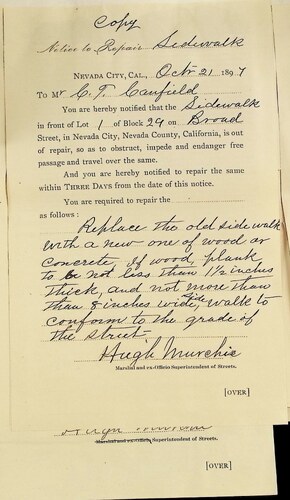 Copy
Notice to Repair Sidewalk
NEVADA CITY, CAL., Octr 21 1897
To Mr C. T. Canfield
You are hereby notified that the Sidewalk
in front of Lot 1 of Block 29 on Broad
Street, in Nevada City, Nevada County, California, is out
of repair, so as to obstruct, impede and endanger free
passage and travel over the same.
And you are hereby notified to repair the same
within THREE DAYS from the date of this notice.
You are required to repair the
as follows:
Replace the old side walk
with a new one of wood or
concrete, If wood, plank
to be not less than 1½ inches
thick, and not more than
than 8 inches wide, walk to
conform to the grade of
the street
Hugh Murchie
Marshal and ex-Officio Superintendent of Streets.
[OVER]
Marshal and ex-Officio Superintendent of Streets.
[OVER]